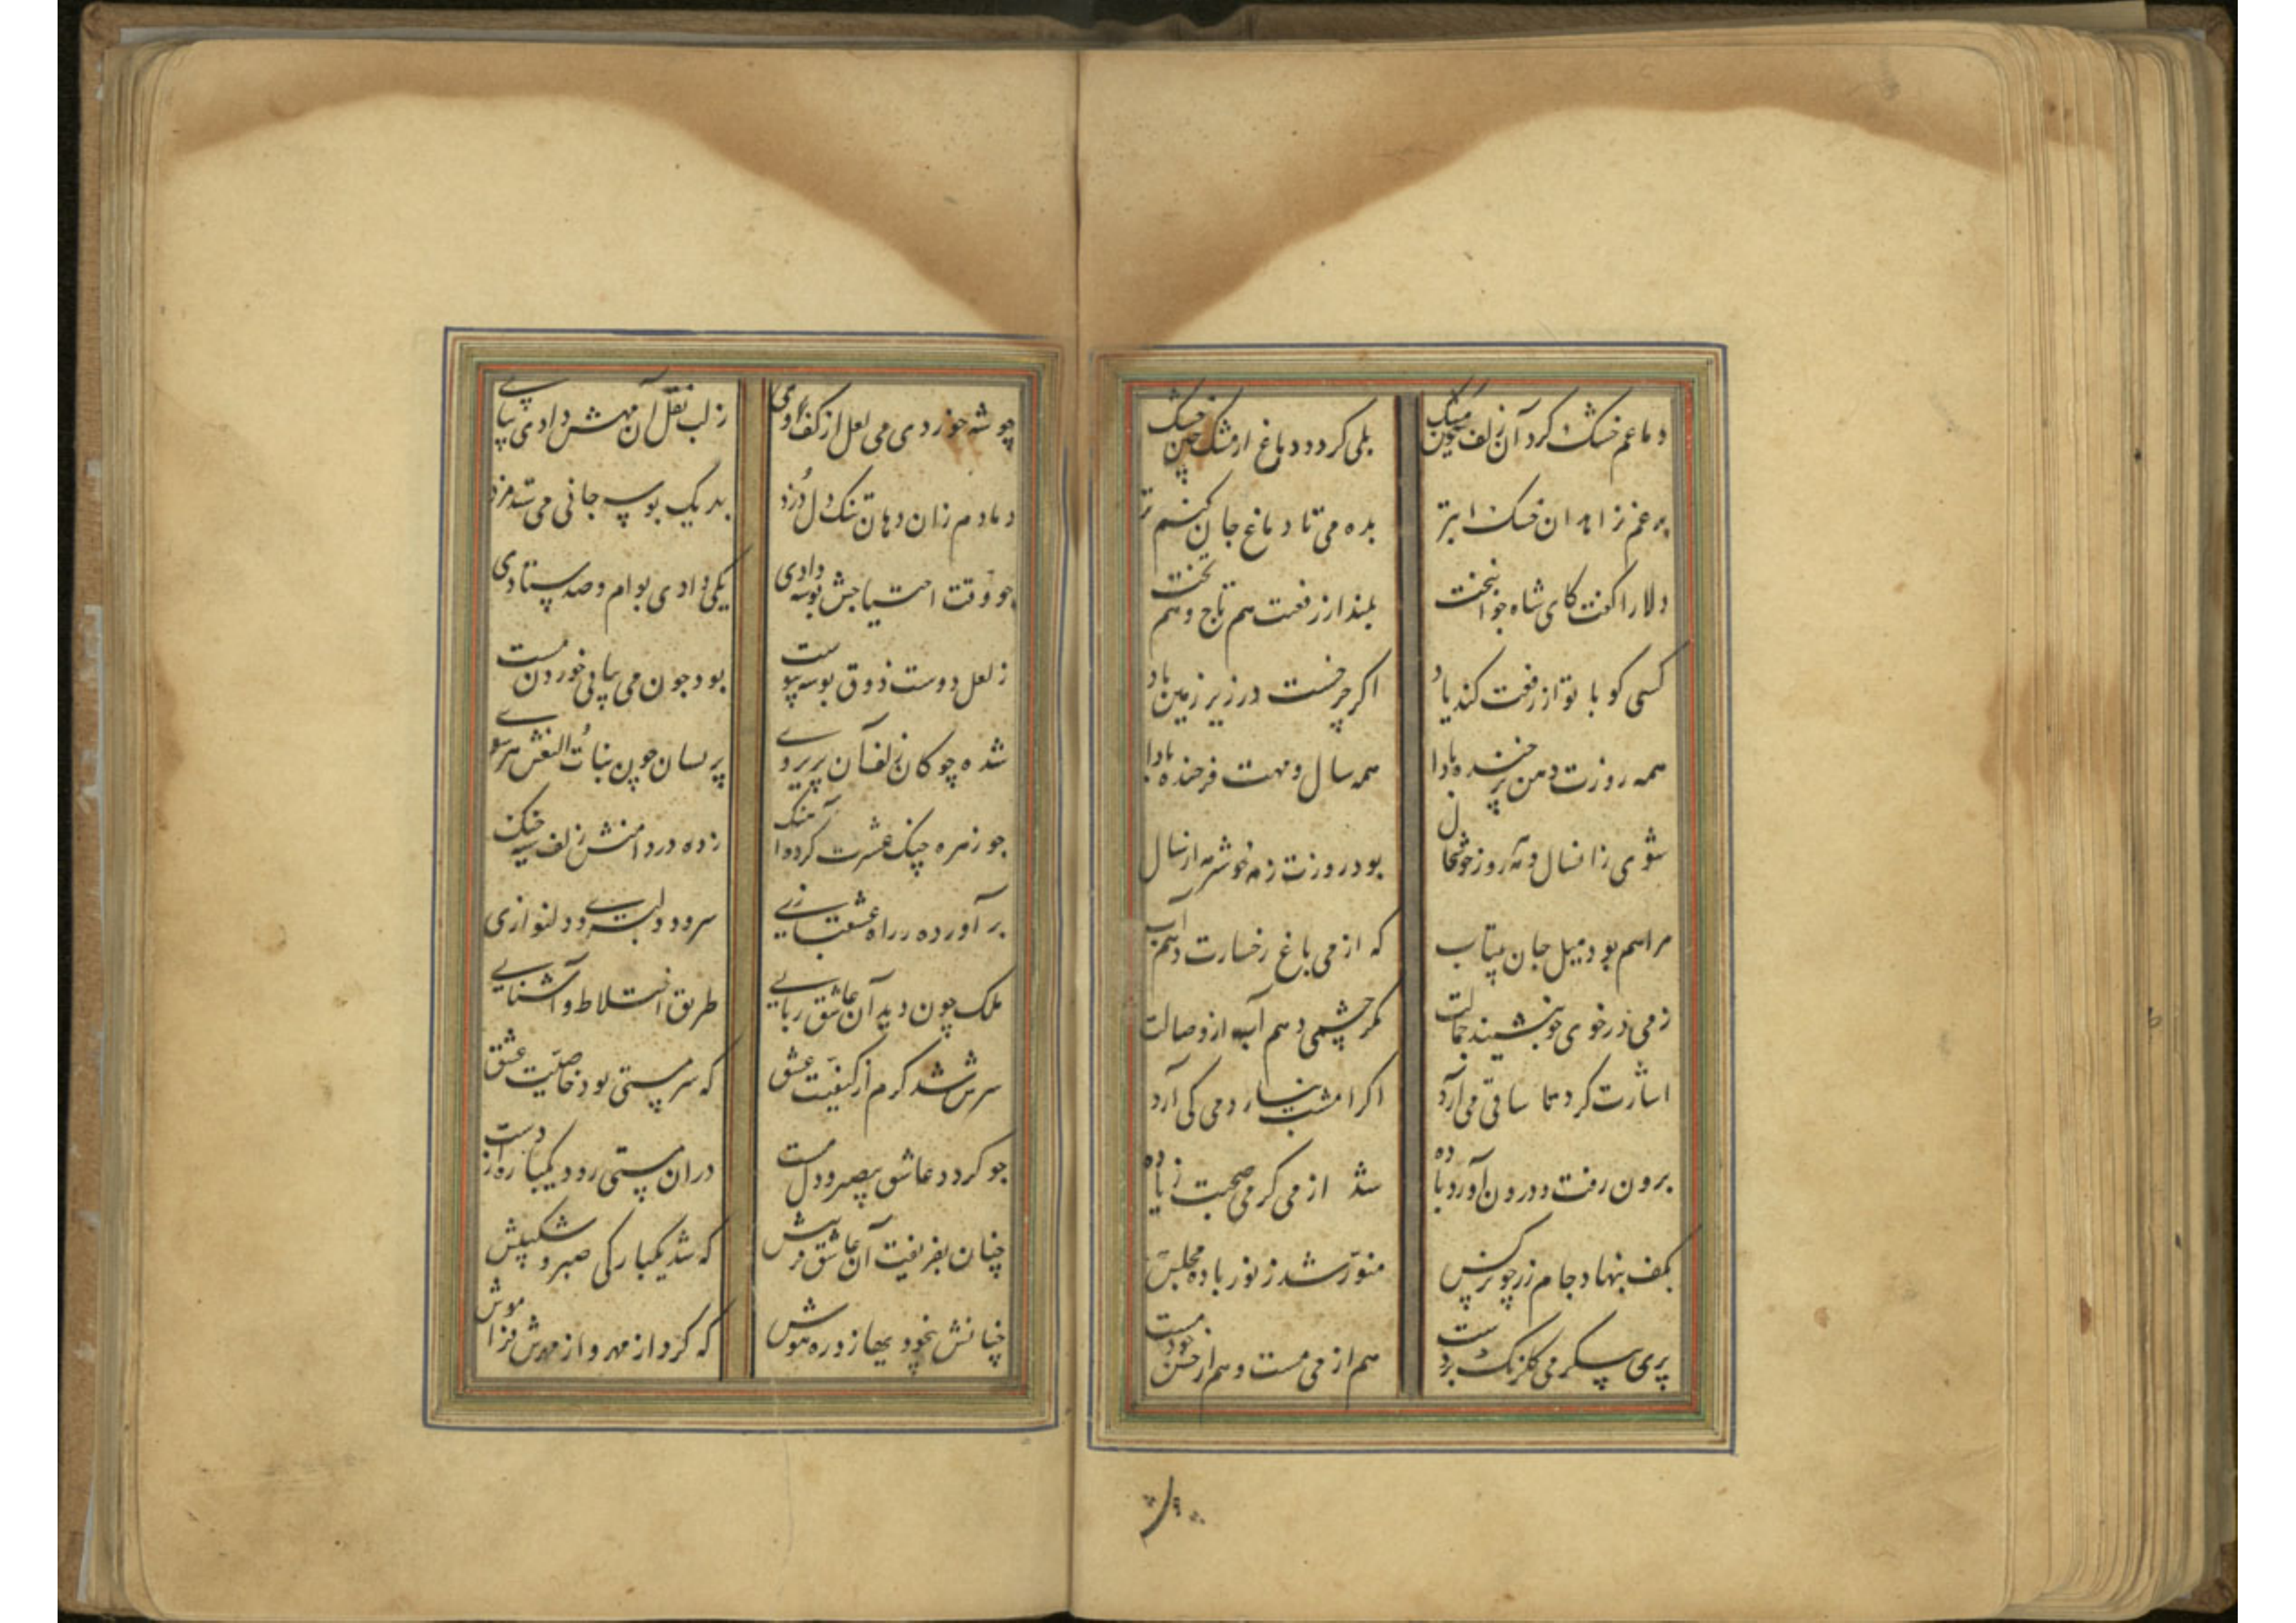 دماغم خشک کرد آن زلف مشکین
بلی کردد دماغ از مشک چین خشک
برغم زاهدان خشک ابتر
بده می تا دماغ جان کنم تر
دلارا کفت کای شاه جوانبخت
بلند از رفعتت هم تاج و هم تخت
کسی کو با تو از رفعت کند یاد
اکر چرخست در زیر زمین باد
همه روزت دمن پر خنده بادا
همه سال و مهت فرخنده بادا
شوی زانسال و مه روز خوشحال
بود روزت ز مه خوشتر مه از سال
مرا هم بود میل جان بیتاب
که از می باغ رخسارت دهم آب
ز می در خوی جو بنشیند جمالت
مکر چشمی دهم آب از وصالت
اشارت کرد تا ساقی می آرد
اکر امشب نیارد می کی آرد
برون رفت و درون آورد باده
شد از می کرمی صحبت زیاده
بکف بنهاد جام زر چو نرکس
منور شد ز نور باده مجلس
پری پیکر می کلرنک بردست
هم از می مست و هم از حسن خود مست
چو شه خوردی می لعل از کف وی
ز لب نقل آن مهش دادی پیاپی
دمادم زان دهان تنک دل دزد
بد یک بوسه جانی می ستد مزد
جو وقت احتیاجش بوسه دادی
یکی دادی بوام و صد ستادی
ز لعل دوست ذوق بوسه پیوست
بود جون می پیاپی خوردن مست
شده چوکان زلف آن پریروی
پریسان جون بنات النعش هر سوی
جو زهره چنک عشرت کرده آهنک
زده در دامنش زلف سیه چنک
برآورده در راه عشقبازی
سرود دلبری و دلنوازی
ملک چون دید آن عاشق ربایی
طریق اختلاط و آشنایی
سرش شد کرم از کیفیت عشق
که سرمستی بود خاصیت عشق
جو کردد عاشق بیصبر و دل مست
دران مستی رود یکباره از دست
چنان بفریفت آن عاشق فریبش
که شد یکبارکی صبر و شکیبش
چنانش بیخودیها زد ره هوش
که کرد از مهر و از مهرش فراموش